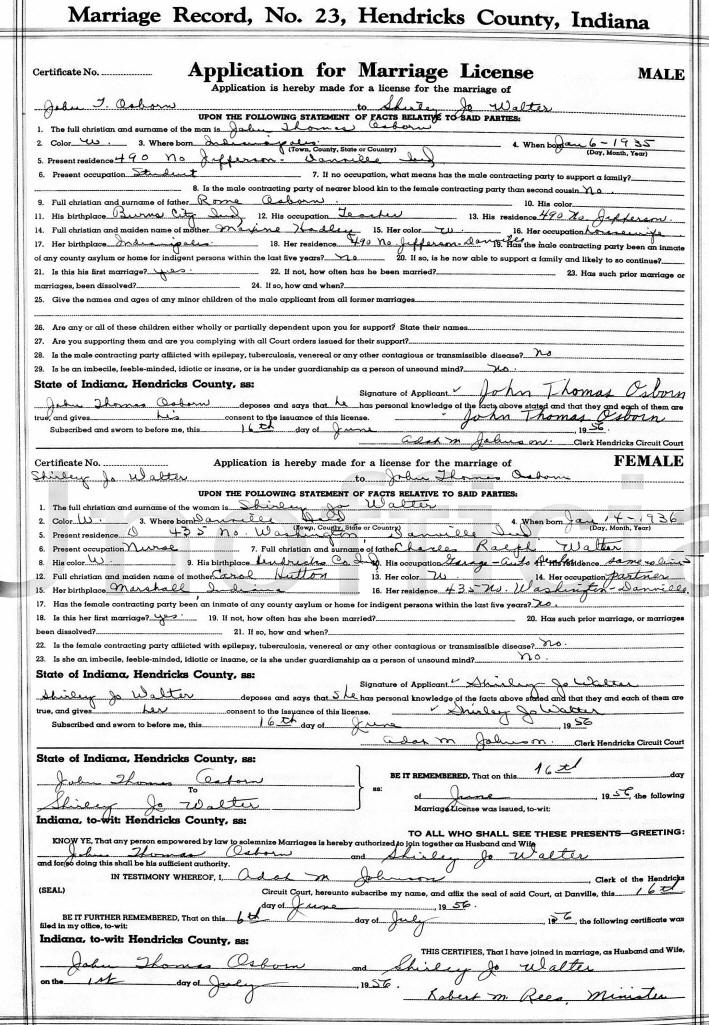 Marriage Record, No. 23, Hendricks County, Indiana
Certificate No. Application for Marriage License MALE
Application is hereby made for a license for the marriage of
John T. Osborn to Shirley Jo Walter
UPON THE FOLLOWING STATEMENT OF FACTS RELATIVE TO SAID PARTIES:
1. The full christian and surname of the man is John Thomas Osborn
2. Color W. 3. Where born Indianapolis 4. When born Jan 6-1935
(Town, County, State or Country) (Day, Month, Year)
5. Present residence 490 No Jefferson - Danville Ind
6. Present occupation Student 7. If no occupation, what means has the male contracting party to support a family?
8. Is the male contracting party of nearer blood kin to the female contracting party than second cousin No.
9. Full christian and surname of father Rome Osborn 10. His color
11. His birthplace Burns City Ind 12. His occupation Teacher 13. His residence 490 No. Jefferson.
14. Full christian and maiden name of mother Maxine Hadley 15. Her color W. 16. Her occupation housewife
17. Her birthplace Indianapolis 18. Her residence 490 No Jefferson-Danville 19. Has the male contracting party been an inmate
of any county asylum or home for indigent persons within the last five years? No 20. If so, is he now able to support a family and likely to so continue?
21. Is this his first marriage? yes. 22. If not, how often has he been married? 23. Has such prior marriage or
marriages, been dissolved? 24. If so, how and when?
25. Give the names and ages of any minor children of the male applicant from all former marriages
26. Are any or all of these children either wholly or partially dependent upon you for support? State their names
27. Are you supporting them and are you complying with all Court orders issued for their support?
28. Is the male contracting party afflicted with epilepsy, tuberculosis, venereal or any other contagious or transmissible disease? No
29. Is he an imbecile, feeble-minded, idiotic or insane, or is he under guardianship as a person of unsound mind? No.
State of Indiana, Hendricks County, ss:
Signature of Applicant John Thomas Osborn
John Thomas Osborn deposes and says that he has personal knowledge of the facts above stated and that they and each of them are
true, and gives his consent to the issuance of this license. John Thomas Osborn
Subscribed and sworn to before me, this 16th day of June, 1956
Adah M Johnson. Clerk Hendricks Circuit Court
Certificate No. Application is hereby made for a license for the marriage of FEMALE
Shirley Jo Walter to John Thomas Osborn
UPON THE FOLLOWING STATEMENT OF FACTS RELATIVE TO SAID PARTIES:
1. The full christian and surname of the woman is Shirley Jo Walter
2. Color W. 3. Where born Danville Ind 4. When born Jan 14-1936
(Town, County, State or Country) (Day, Month, Year)
5. Present residence 435 No. Washington, Danville Ind
6. Present occupation Nurse 7. Full christian and surname of father Charles Ralph Walter
8. His color W. 9. His birthplace Hendricks Co. Ind 10. His occupation Garage-Auto 11. His residence same
12. Full christian and maiden name of mother Carol Hutton 13. Her color W. 14. Her occupation partner
15. Her birthplace Marshall, Indiana 16. Her residence 435 No. Washington-Danville.
17. Has the female contracting party been an inmate of any county asylum or home for indigent persons within the last five years? No.
18. Is this her first marriage? yes. 19. If not, how often has she been married? 20. Has such prior marriage, or marriages
been dissolved? 21. If so, how and when?
22. Is the female contracting party afflicted with epilepsy, tuberculosis, venereal or any other contagious or transmissible disease? No.
23. Is she an imbecile, feeble-minded, idiotic or insane, or is she under guardianship as a person of unsound mind? No.
State of Indiana, Hendricks County, ss:
Signature of Applicant Shirley Jo Walter
Shirley Jo Walter deposes and says that she has personal knowledge of the facts above stated and that they and each of them are
true, and gives her consent to the issuance of this license. Shirley Jo Walter
Subscribed and sworn to before me, this 16th day of June, 1956
Adah M Johnson. Clerk Hendricks Circuit Court
State of Indiana, Hendricks County, ss:
John Thomas Osborn
To
Shirley Jo Walter
ss: BE IT REMEMBERED, That on this 16th day
of June, 1956, the following
Marriage License was issued, to-wit:
Indiana, to-wit: Hendricks County, ss:
TO ALL WHO SHALL SEE THESE PRESENTS—GREETING:
KNOW YE, That any person empowered by law to solemnize Marriages is hereby authorized to join together as Husband and Wife
John Thomas Osborn and Shirley Jo Walter
and for so doing this shall be his sufficient authority.
IN TESTIMONY WHEREOF, I, Adah M Johnson Clerk of the Hendricks
(SEAL) Circuit Court, hereunto subscribe my name, and affix the seal of said Court, at Danville, this 16th
day of June, 1956.
BE IT FURTHER REMEMBERED, That on this 6th day of July, 1956, the following certificate was
filed in my office, to-wit:
Indiana, to-wit: Hendricks County, ss:
THIS CERTIFIES, That I have joined in marriage, as Husband and Wife,
John Thomas Osborn and Shirley Jo Walter
on the 1st day of July, 1956.
Robert M. Rees, Minister